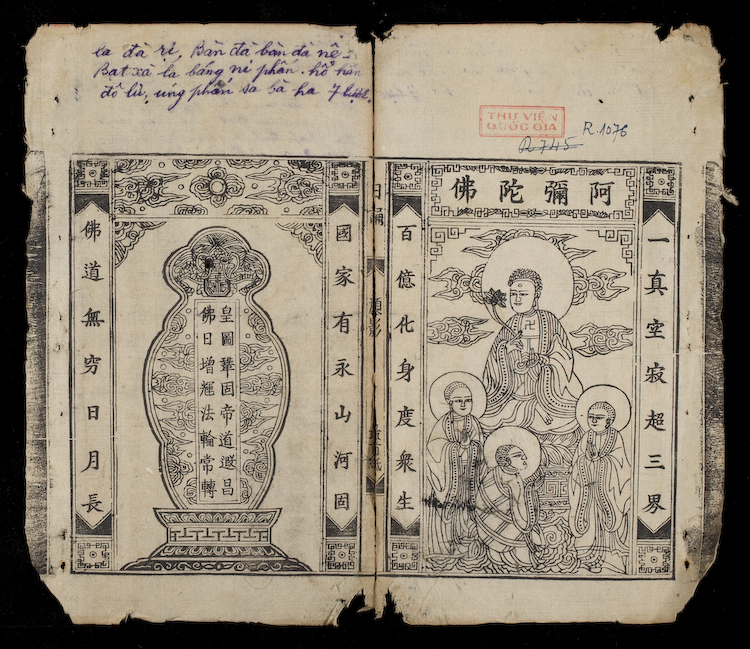 la đà rị, Bàn đà bàn đà nể
Bạt xà la báng ni phấn. hổ hàn
đô lử, ứng phấn sa bà ha 7 lượt.
THƯ VIỆN
QUỐC GIA
R.1076
R.745
阿彌陀佛
一真空寂超三界
百億化身度衆生
國家有永山河固
皇圖鞏固帝道遐昌
佛日增輝法輪常轉
佛道無穷日月長